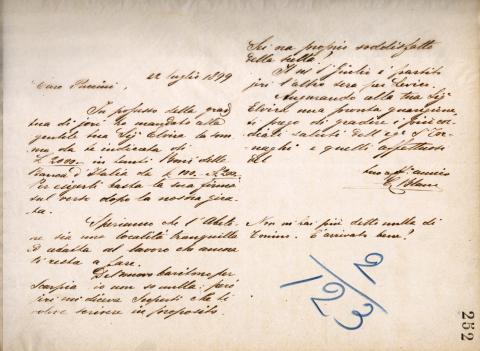 22 luglio 1899
Caro Puccini,
In possesso della grad.
tua di jeri ho mandato alla
gentile tua Sigᵃ Elvira la som-
ma da te indicata di
L 2000.- in tanti Buoni della
Banca d'Italia da L 100.-
Per esigerli basta la sua firma
sul verso dopo la nostra gira-
ta.
Speriamo che l'Abeto-
ne sia una località tranquilla
e adatta al lavoro che ancora
ti resta a fare.
Del nuovo baritono per
Scarpia io non so nulla: però
jeri mi diceva Tiscporti che ti
voleva scrivere in proposito.
Sei na proprio soddisfatto
della scelta.
Il Sig. Giulio è partito
jeri l'altro sera per Levico.
Augurando alla tua Sigᵃ
Elvira una pronta guarigione,
ti prego di gradire i più cor-
diali saluti dell'egᵒ Sʳ
e quelli affettuosi
del
tuo aff. amico
C Blanc
Non mi hai più detto nulla di
Tonino. È arrivato bene?
2
123
252